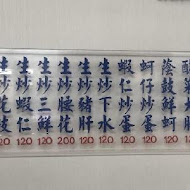 蔭豉鮮蚵 120
蚵仔炒蛋 120
蝦仁炒蛋 120
生炒下水 120
生炒豬肝 120
生炒腰花 200
生炒三鮮 120
生炒蝦仁 120
生炒花枝